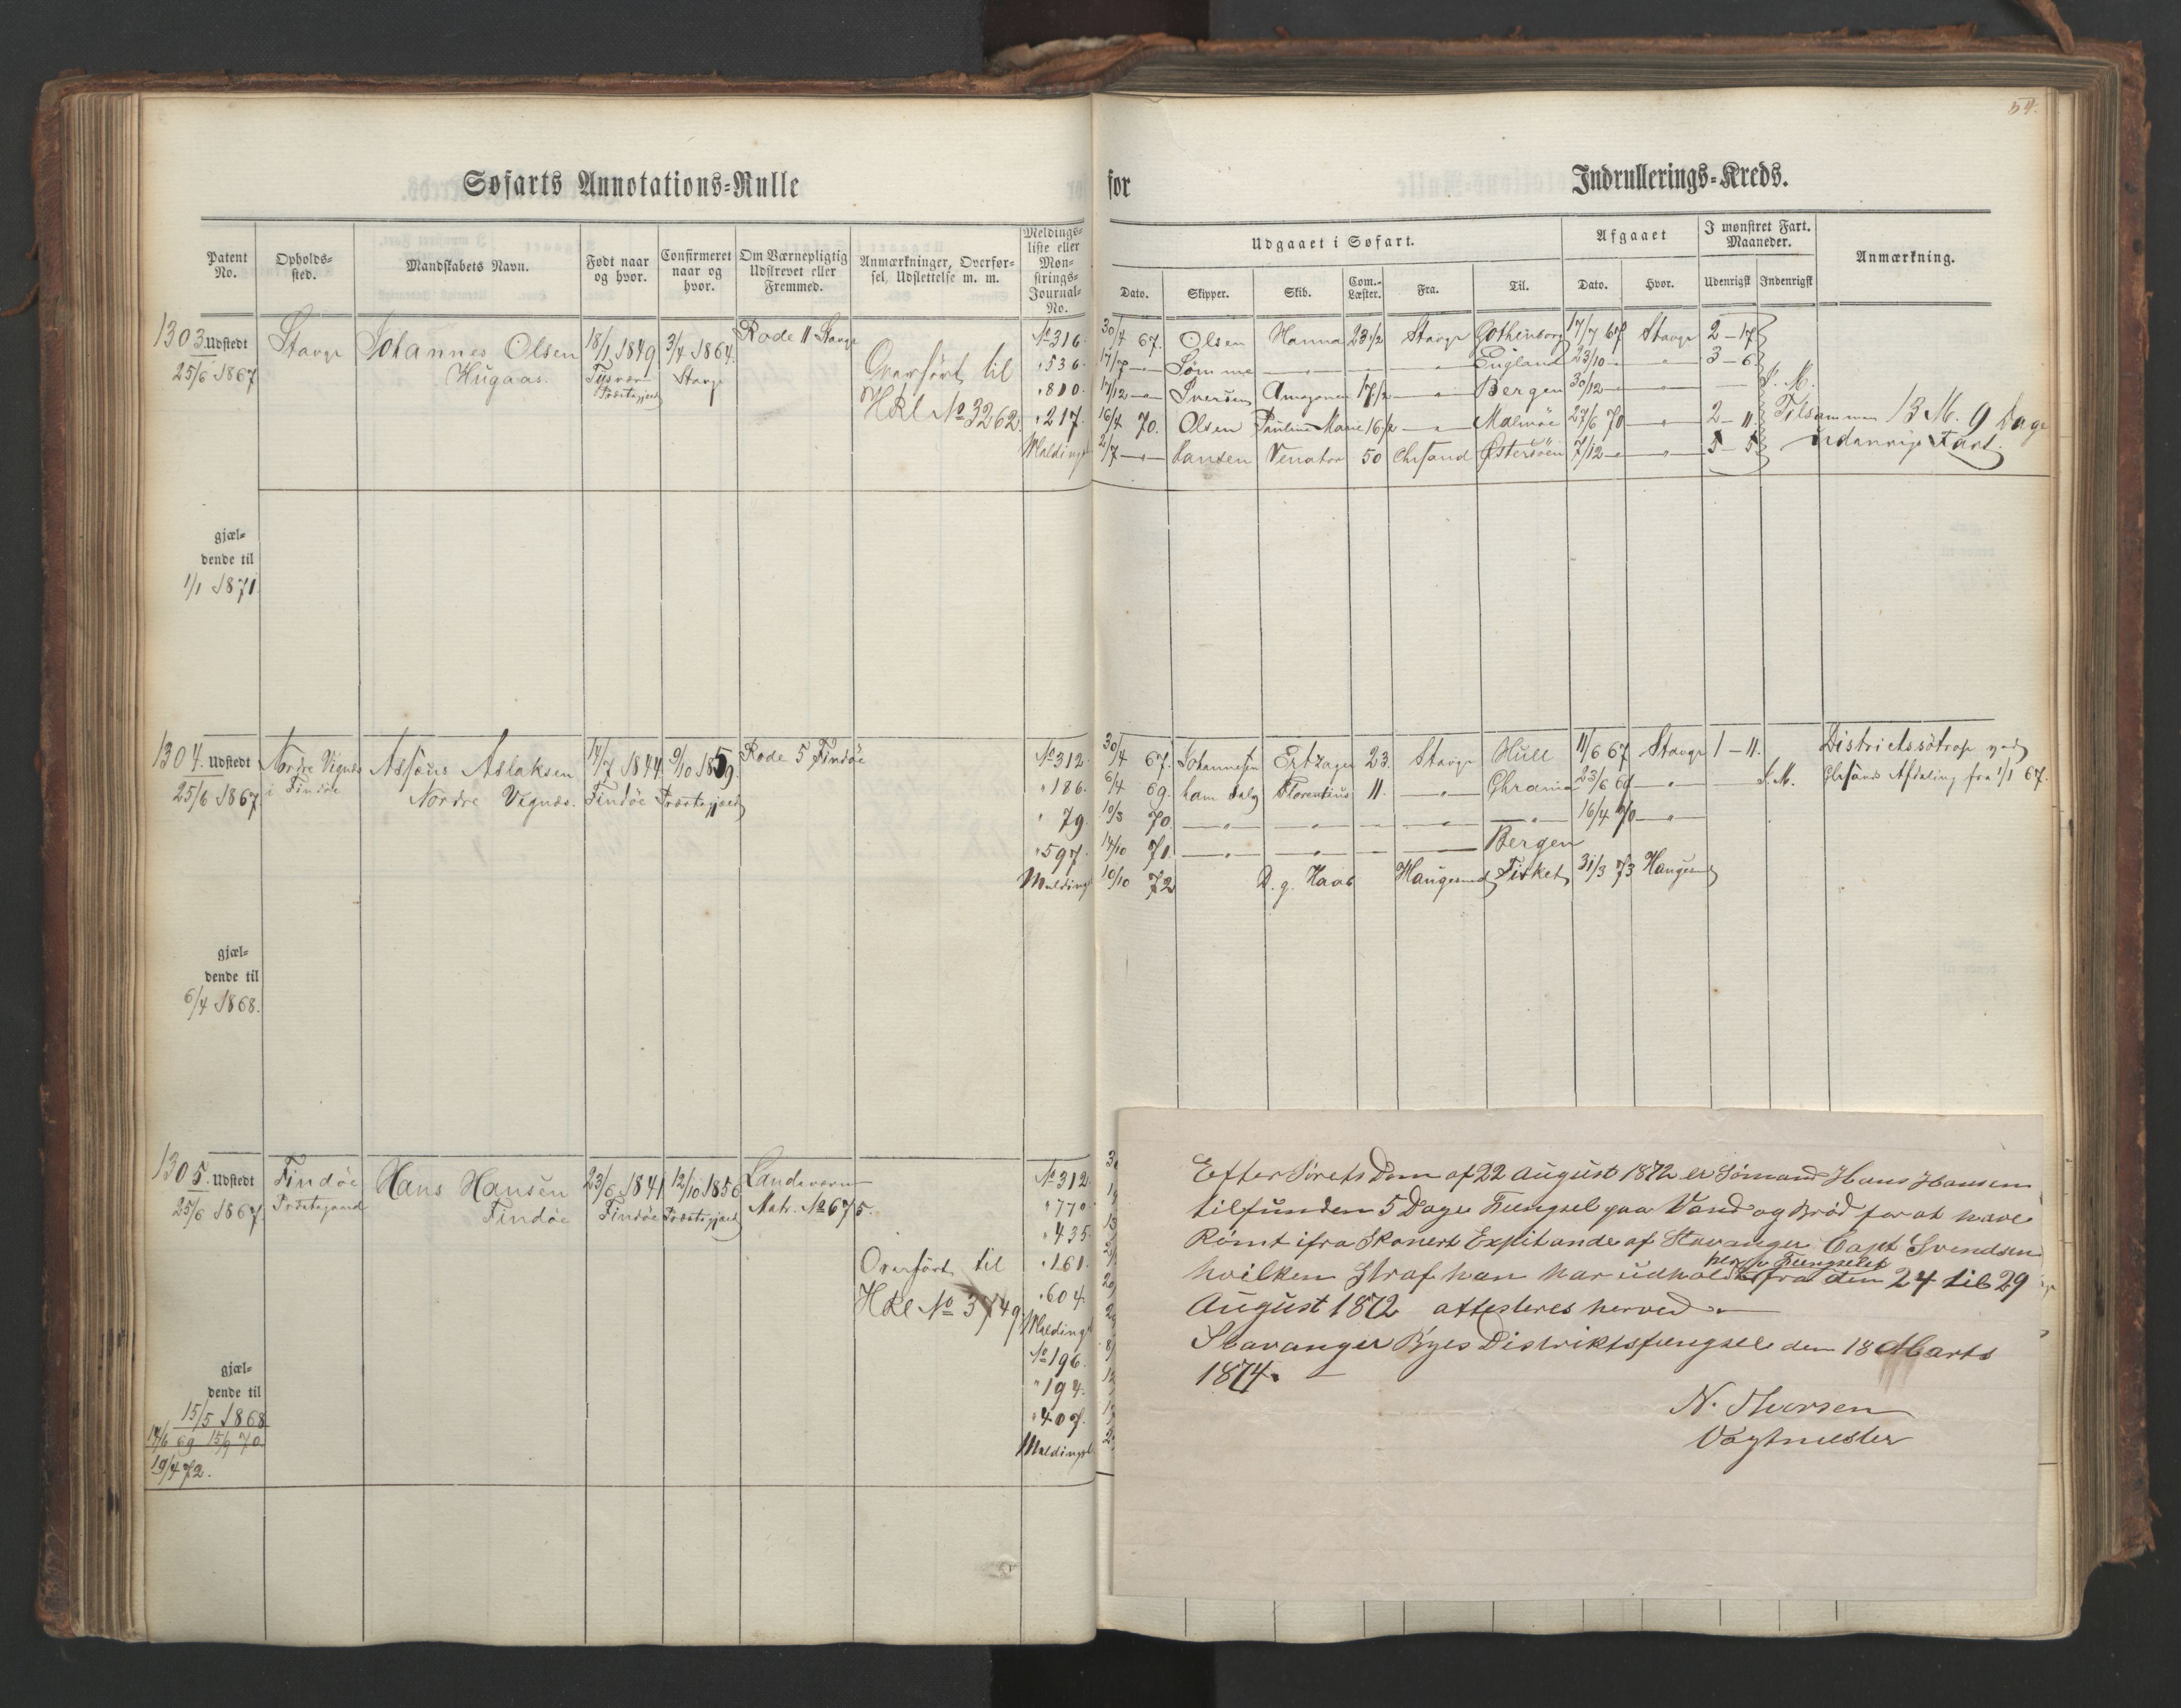 54.
Søfarts Annotations-Rulle
for
Indrullerings-Kreds.
Patent No. Opholds-sted. Mandskabets Navn. Født naar og hvor. Confirmeret naar og hvor. Om Værnepligtig Udskrevet eller Fremmed. Anmærkninger, Overfør-sel, Udslettelse m. m. Meldings-liste eller Møn-strings-Journal-No.
Udgaaet i Søfart. Afgaaet I mønstret Fart. Maaneder. Anmærkning.
Dato. Skipper. Skib. Com.-Læster. Fra. Til. Dato. Hvor. Udenrigsk Indenrigsk
1303. Udstedt Stavgr Johannes Olsen 18/1 1849 3/4 1864. Rode 11 Stavgr No 316
25/6 1867 Hugaas. Tysvær Præstegjeld Stavgr Overført til " 536
" 800
HRl No 3262 " 217
Meldingsl
30/4 67. Olsen Hanna 23 1/2 Stavgr Gothenborg 17/7 67 Stavgr 2-17
17/7 -"- Sømme -"- -"- England 23/10 -"- -"- 3-6
17/12 -"- Iversen Amazonen 17 1/2 -"- Bergen 30/12 -"- -"- - I. M.
16/4 70. Olsen Pauline Marie 16 1/2 -"- Malmöe 27/6 70 -"- 2-11. Tilsammen 13 M. 9 Dage
2/7 -"- Hansen Venator 50 Chrsand Østersöen 7/12 -"- -"- 5-5 udenrigs Fart.
gjæl-
dende til
1/1 1871
1304. Udstedt Nordre Vignæs Asseus Aslaksen 14/7 1844 9/10 1859 Rode 5 Findöe No 312
25/6 1867. i Findöe Nordre Vignæs. Findöe Præstegjeld " 186
" 79
" 597
Meldingsl
30/4 67. Johannesen Ertzager 23. Stavgr Hull 11/6 67 Stavgr 1-11. Districtssötrop ved
6/4 69. Florentius 11. -"- Chrania 23/6 69 -"- - I. M. Chrsands Afdeling fra 1/1 67.
10/3 70 -"- -"- - -"- -"- 16/4 70 -"-
14/10 71. -"- -"- - Bergen
10/10 72 D. g. Haab Haugesund Fisket 31/3 73 Haugesund
gjæl-
dende til
6/4 1868.
1305. Udstedt Findöe Hans Hansen 23/6 1841 12/10 1856 Landeværn No 312
25/6 1867. Præstegaard Findöe Findöe Præstegjeld Matr. No 675. " 770
" 435
Overført til " 161
HRl No 3749. " 604
Meldingsl
No 196
" 194
" 407
Meldingsl
gjæl-
dende til
15/5 1868
14/6 69 15/9 70
19/4 72.
Efter Sørets Dom af 22 August 1872 er Sømand Hans Hansen
tilfunden 5 Dages Fængsel paa Vand og Brød for at have
Rømt ifra Skonert Expitande af Stavanger Capt Svendsen
hvilken Straf han har udholdt her i Fængselet fra den 24 til 29
August 1872 attesteres herved
Stavanger Byes Distriktsfængsele den 18 Marts
1874.
N. Thorsen
Vagtmester